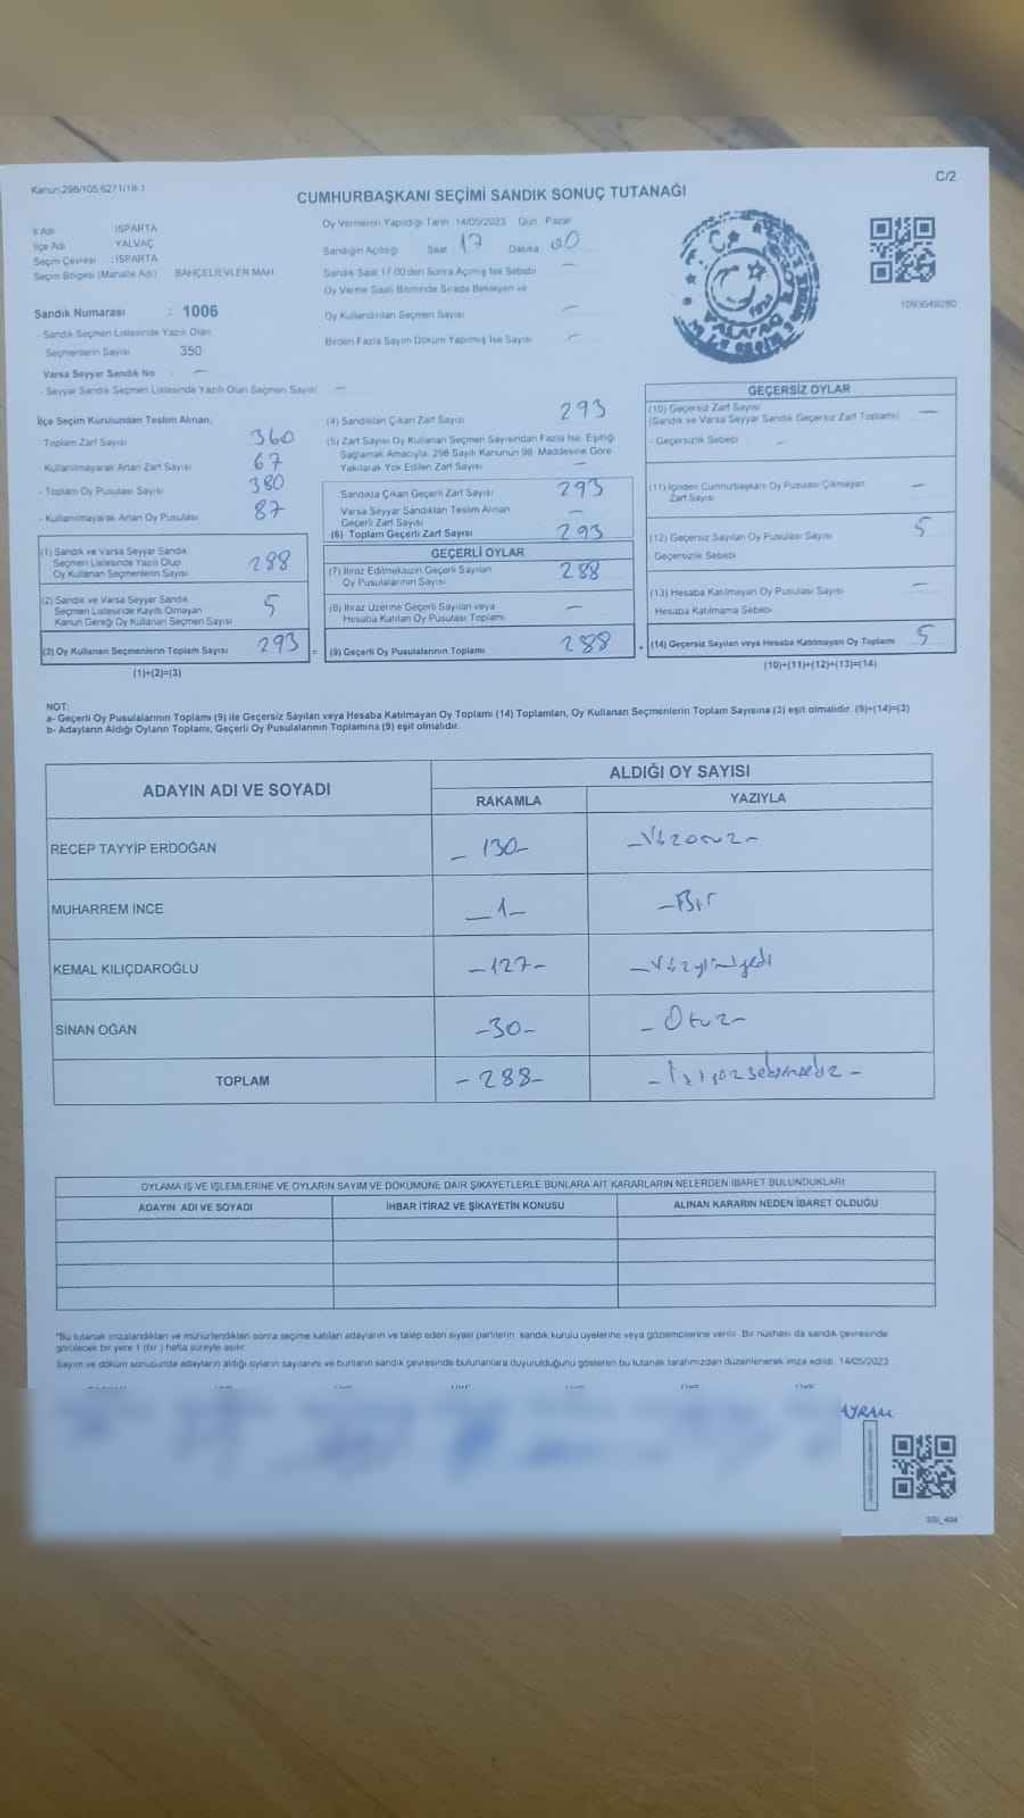 Kanun:298/105,6271/18-1
C/2
CUMHURBAŞKANI SEÇİMİ SANDIK SONUÇ TUTANAĞI
İl Adı : ISPARTA
İlçe Adı : YALVAÇ
Seçim Çevresi : ISPARTA
Seçim Bölgesi (Mahalle Adı) : BAHÇELİEVLER MAH.
Oy Vermenin Yapıldığı Tarih: 14/05/2023 Gün: Pazar
Sandığın Açıldığı Saat 17 Dakika 00
Sandık Saat 17.00'den Sonra Açılmış İse Sebebi —
Oy Verme Saati Bitiminde Sırada Bekleyen ve
Oy Kullandırılan Seçmen Sayısı —
Birden Fazla Sayım Döküm Yapılmış İse Sayısı —
Sandık Numarası : 1006
- Sandık Seçmen Listesinde Yazılı Olan
Seçmenlerin Sayısı 350
Varsa Seyyar Sandık No —
- Seyyar Sandık Seçmen Listesinde Yazılı Olan Seçmen Sayısı —
İlçe Seçim Kurulundan Teslim Alınan,
Toplam Zarf Sayısı 360
- Kullanılmayarak Artan Zarf Sayısı 67
- Toplam Oy Pusulası Sayısı 380
- Kullanılmayarak Artan Oy Pusulası 87
(1) Sandık ve Varsa Seyyar Sandık
Seçmen Listesinde Yazılı Olup
Oy Kullanan Seçmenlerin Sayısı 288
(2) Sandık ve Varsa Seyyar Sandık
Seçmen Listesinde Kayıtlı Olmayan
Kanun Gereği Oy Kullanan Seçmen Sayısı 5
(3) Oy Kullanan Seçmenlerin Toplam Sayısı 293
(1)+(2)=(3)
(4) Sandıktan Çıkan Zarf Sayısı 293
(5) Zarf Sayısı Oy Kullanan Seçmen Sayısından Fazla İse, Eşitliği
Sağlamak Amacıyla, 298 Sayılı Kanunun 98. Maddesine Göre
Yakılarak Yok Edilen Zarf Sayısı —
Sandıkta Çıkan Geçerli Zarf Sayısı 293
Varsa Seyyar Sandıktan Teslim Alınan
Geçerli Zarf Sayısı —
(6) Toplam Geçerli Zarf Sayısı 293
GEÇERLİ OYLAR
(7) İtiraz Edilmeksizin Geçerli Sayılan
Oy Pusulalarının Sayısı 288
(8) İtiraz Üzerine Geçerli Sayılan veya
Hesaba Katılan Oy Pusulası Toplamı —
(9) Geçerli Oy Pusulalarının Toplamı 288
GEÇERSİZ OYLAR
(10) Geçersiz Zarf Sayısı
(Sandık ve Varsa Seyyar Sandık Geçersiz Zarf Toplamı) —
- Geçersizlik Sebebi —
(11) İçinden Cumhurbaşkanı Oy Pusulası Çıkmayan
Zarf Sayısı —
(12) Geçersiz Sayılan Oy Pusulası Sayısı 5
Geçersizlik Sebebi
(13) Hesaba Katılmayan Oy Pusulası Sayısı —
Hesaba Katılmama Sebebi
(14) Geçersiz Sayılan veya Hesaba Katılmayan Oy Toplamı 5
(10)+(11)+(12)+(13)=(14)
NOT:
a- Geçerli Oy Pusulalarının Toplamı (9) ile Geçersiz Sayılan veya Hesaba Katılmayan Oy Toplamı (14) Toplamları, Oy Kullanan Seçmenlerin Toplam Sayısına (3) eşit olmalıdır. (9)+(14)=(3)
b- Adayların Aldığı Oyların Toplamı, Geçerli Oy Pusulalarının Toplamına (9) eşit olmalıdır.
ADAYIN ADI VE SOYADI
ALDIĞI OY SAYISI
RAKAMLA YAZIYLA
RECEP TAYYİP ERDOĞAN - 130 - - Yüzotuz -
MUHARREM İNCE - 1 - - Bir
KEMAL KILIÇDAROĞLU - 127 - - Yüzyirmiyedi
SİNAN OĞAN - 30 - - Otuz -
TOPLAM - 288 - - İkiyüzseksensekiz -
OYLAMA İŞ VE İŞLEMLERİNE VE OYLARIN SAYIM VE DÖKÜMÜNE DAİR ŞİKAYETLERLE BUNLARA AİT KARARLARIN NELERDEN İBARET BULUNDUKLARI
ADAYIN ADI VE SOYADI İHBAR İTİRAZ VE ŞİKAYETİN KONUSU ALINAN KARARIN NEDEN İBARET OLDUĞU
*Bu tutanak imzalandıktan ve mühürlendikten sonra seçime katılan adayların ve talep eden siyasi partilerin, sandık kurulu üyelerine veya gözlemcilerine verilir. Bir nüshası da sandık çevresinde
görülecek bir yere 1 (bir) hafta süreyle asılır.
Sayım ve döküm sonucunda adayların aldığı oyların sayılarını ve bunların sandık çevresinde bulunanlara duyurulduğunu gösteren bu tutanak tarafımızdan düzenlenerek imza edildi. 14/05/2023